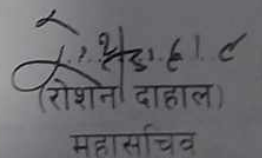 (रोशनी दाहाल)
महासचिव